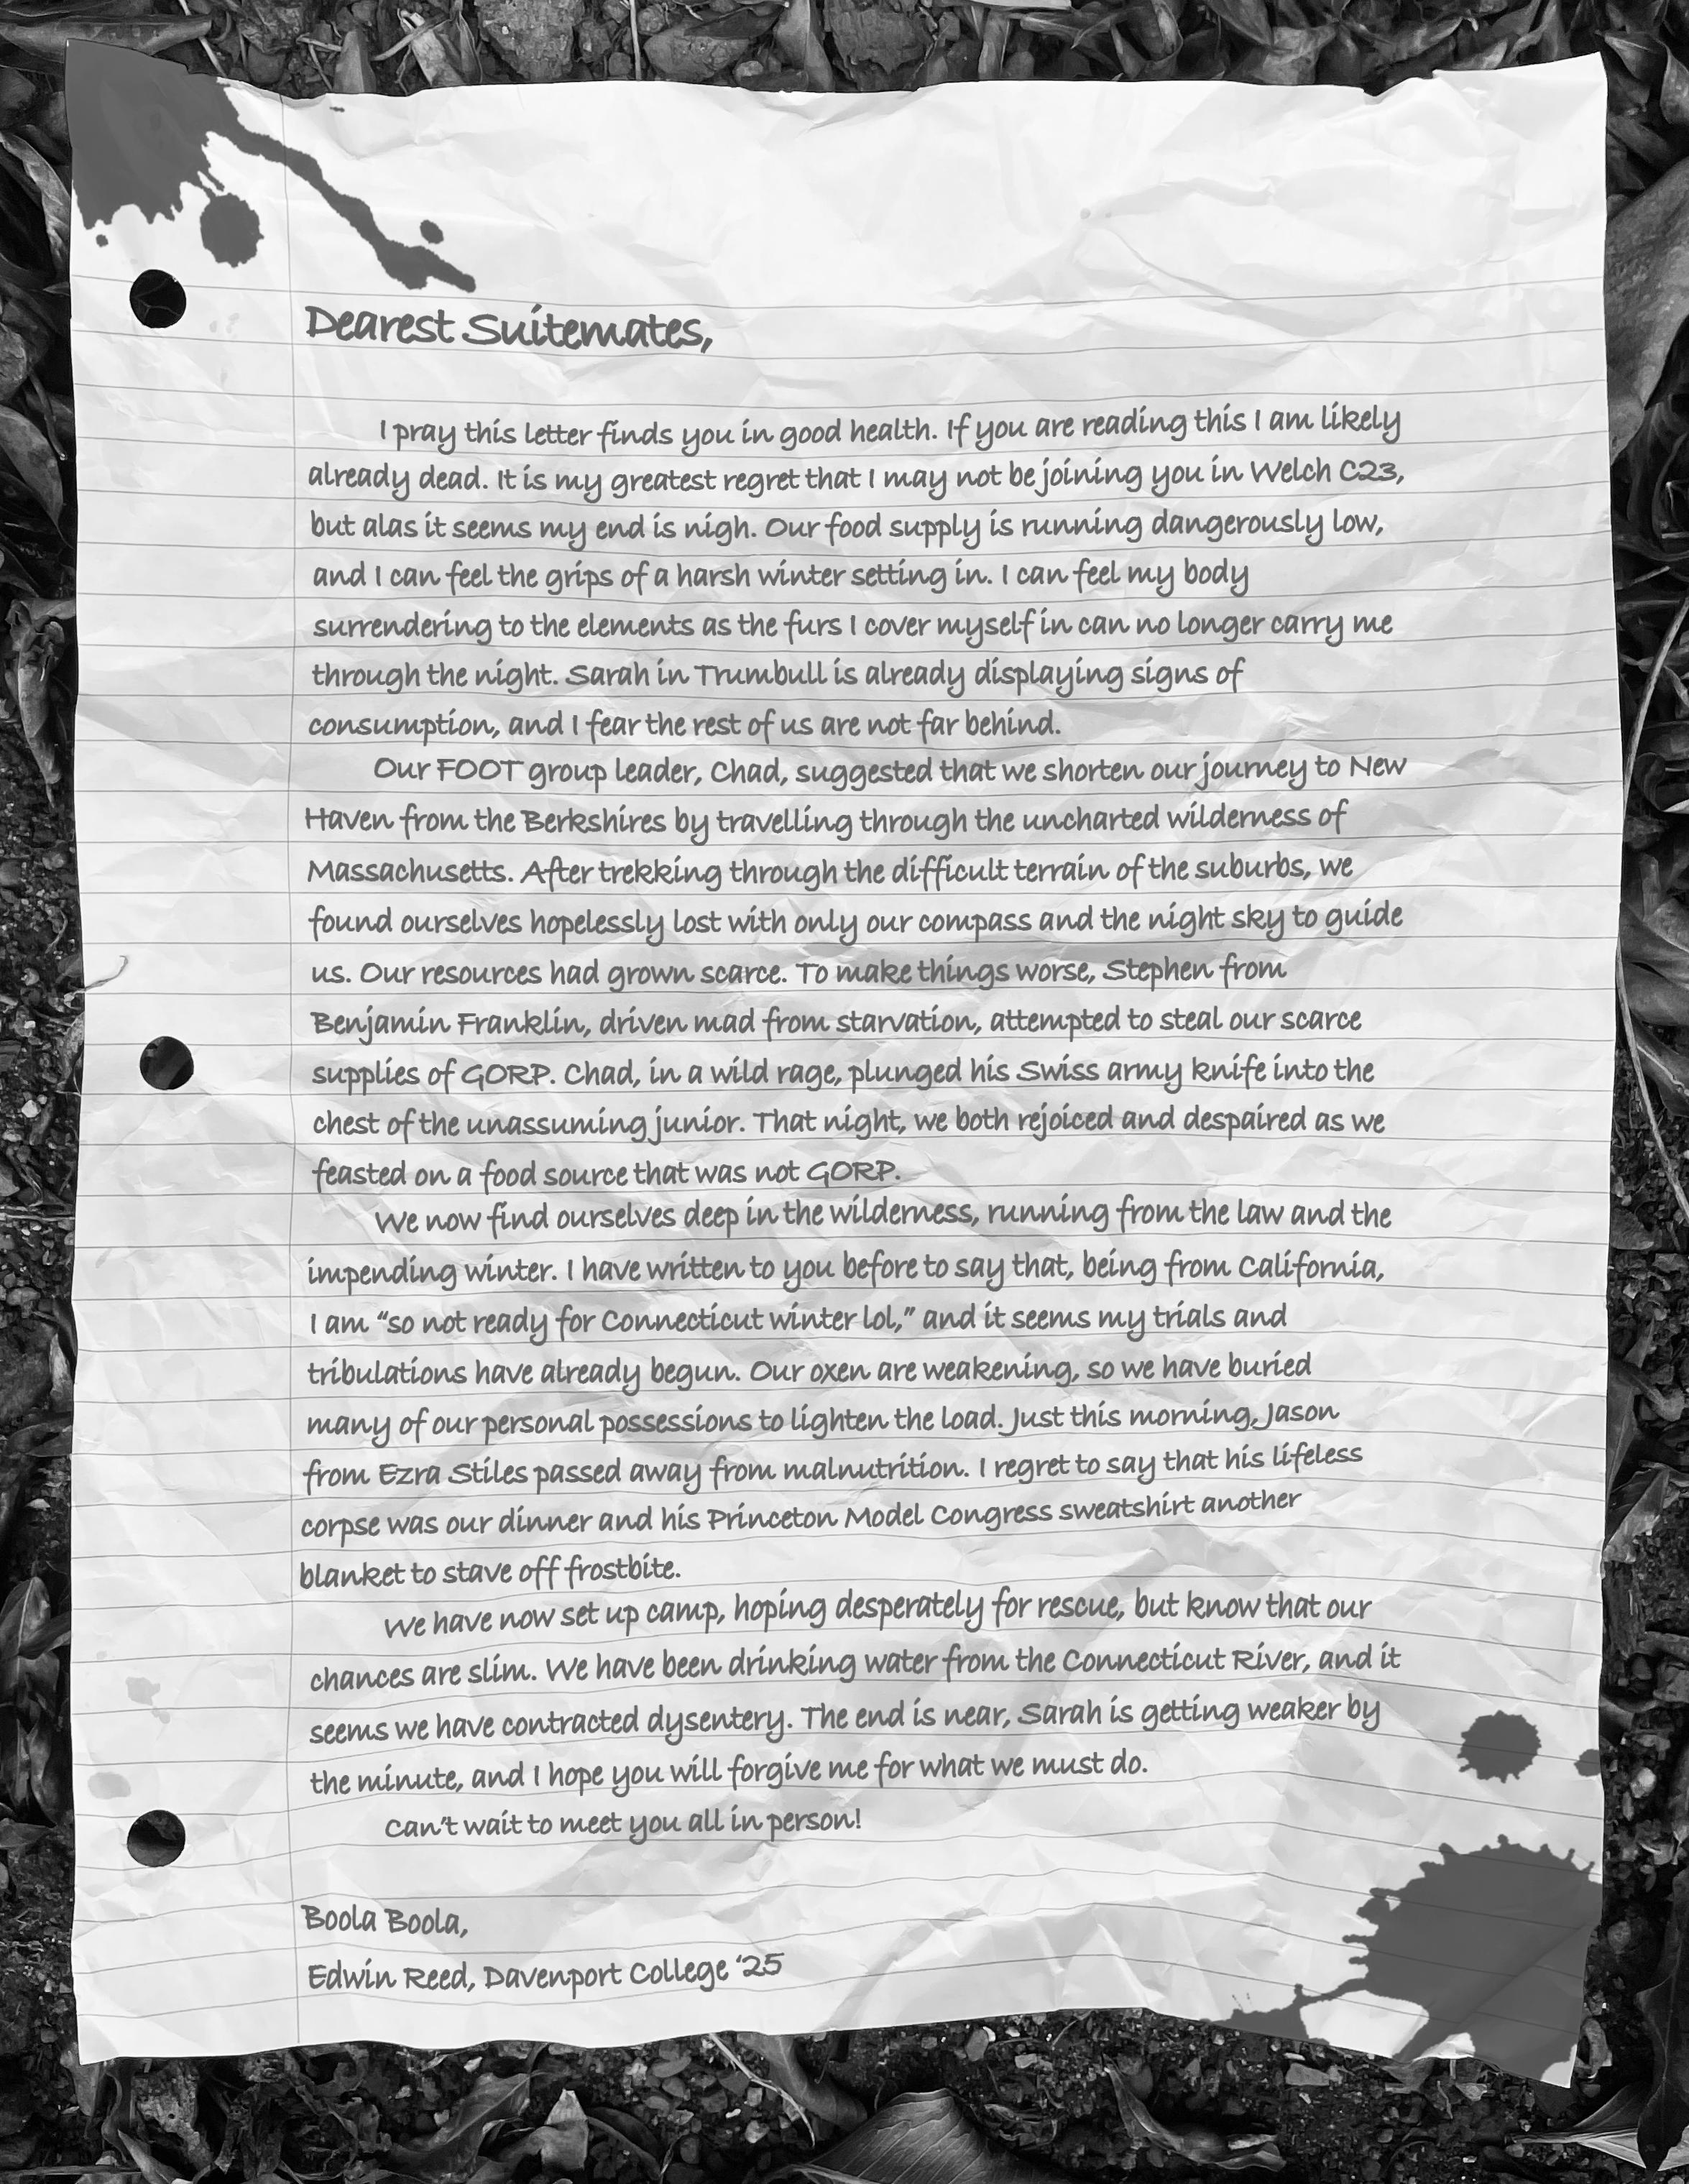 Dearest Suitemates,
I pray this letter finds you in good health. If you are reading this I am likely
already dead. It is my greatest regret that I may not be joining you in Welch C23,
but alas it seems my end is nigh. Our food supply is running dangerously low,
and I can feel the grips of a harsh winter setting in. I can feel my body
surrendering to the elements as the furs I cover myself in can no longer carry me
through the night. Sarah in Trumbull is already displaying signs of
consumption, and I fear the rest of us are not far behind.
Our FOOT group leader, Chad, suggested that we shorten our journey to New
Haven from the Berkshires by travelling through the uncharted wilderness of
Massachusetts. After trekking through the difficult terrain of the suburbs, we
found ourselves hopelessly lost with only our compass and the night sky to guide
us. Our resources had grown scarce. To make things worse, Stephen from
Benjamin Franklin, driven mad from starvation, attempted to steal our scarce
supplies of GORP. Chad, in a wild rage, plunged his Swiss army knife into the
chest of the unassuming junior. That night, we both rejoiced and despaired as we
feasted on a food source that was not GORP.
We now find ourselves deep in the wilderness, running from the law and the
impending winter. I have written to you before to say that, being from California,
I am “so not ready for Connecticut winter lol,” and it seems my trials and
tribulations have already begun. Our oxen are weakening, so we have buried
many of our personal possessions to lighten the load. Just this morning, Jason
from Ezra Stiles passed away from malnutrition. I regret to say that his lifeless
corpse was our dinner and his Princeton Model Congress sweatshirt another
blanket to stave off frostbite.
We have now set up camp, hoping desperately for rescue, but know that our
chances are slim. We have been drinking water from the Connecticut River, and it
seems we have contracted dysentery. The end is near, Sarah is getting weaker by
the minute, and I hope you will forgive me for what we must do.
Can’t wait to meet you all in person!
Boola Boola,
Edwin Reed, Davenport College ‘25